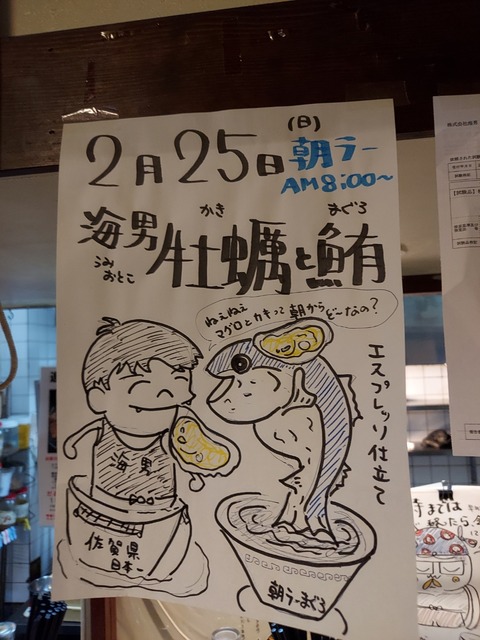 2月25日(日)朝ラー
AM8:00~
海男牡蠣と鮪
うみおとこ
かき
まぐろ
ねぇねぇ
マグロとカキって朝からど~なの?
エスプレッソ仕立て
海男
佐賀県
日本一
朝ラーまぐろ